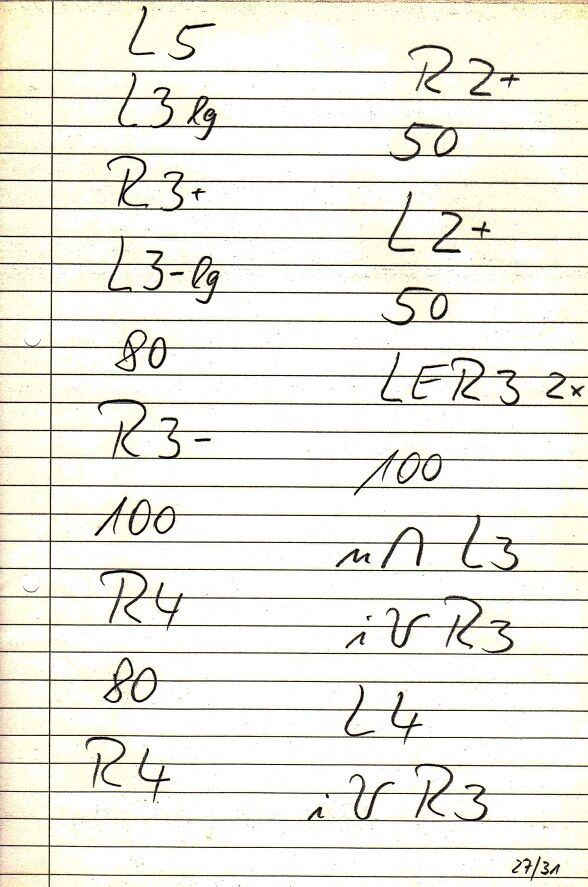 L5
L3 lg
R3+
L3- lg
80
R3-
100
R4
80
R4
R2+
50
L2+
50
LER3 2x
100
n∩ L3
i V R3
L4
i V R3
27/31